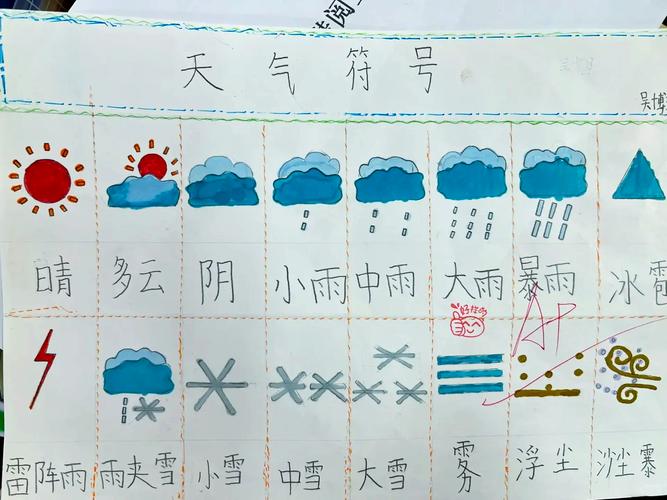 阅
天气符号
吴博
晴 多云 阴 小雨 中雨 大雨 暴雨 冰雹
雷阵雨 雨夹雪 小雪 中雪 大雪 雾 浮尘 沙尘暴